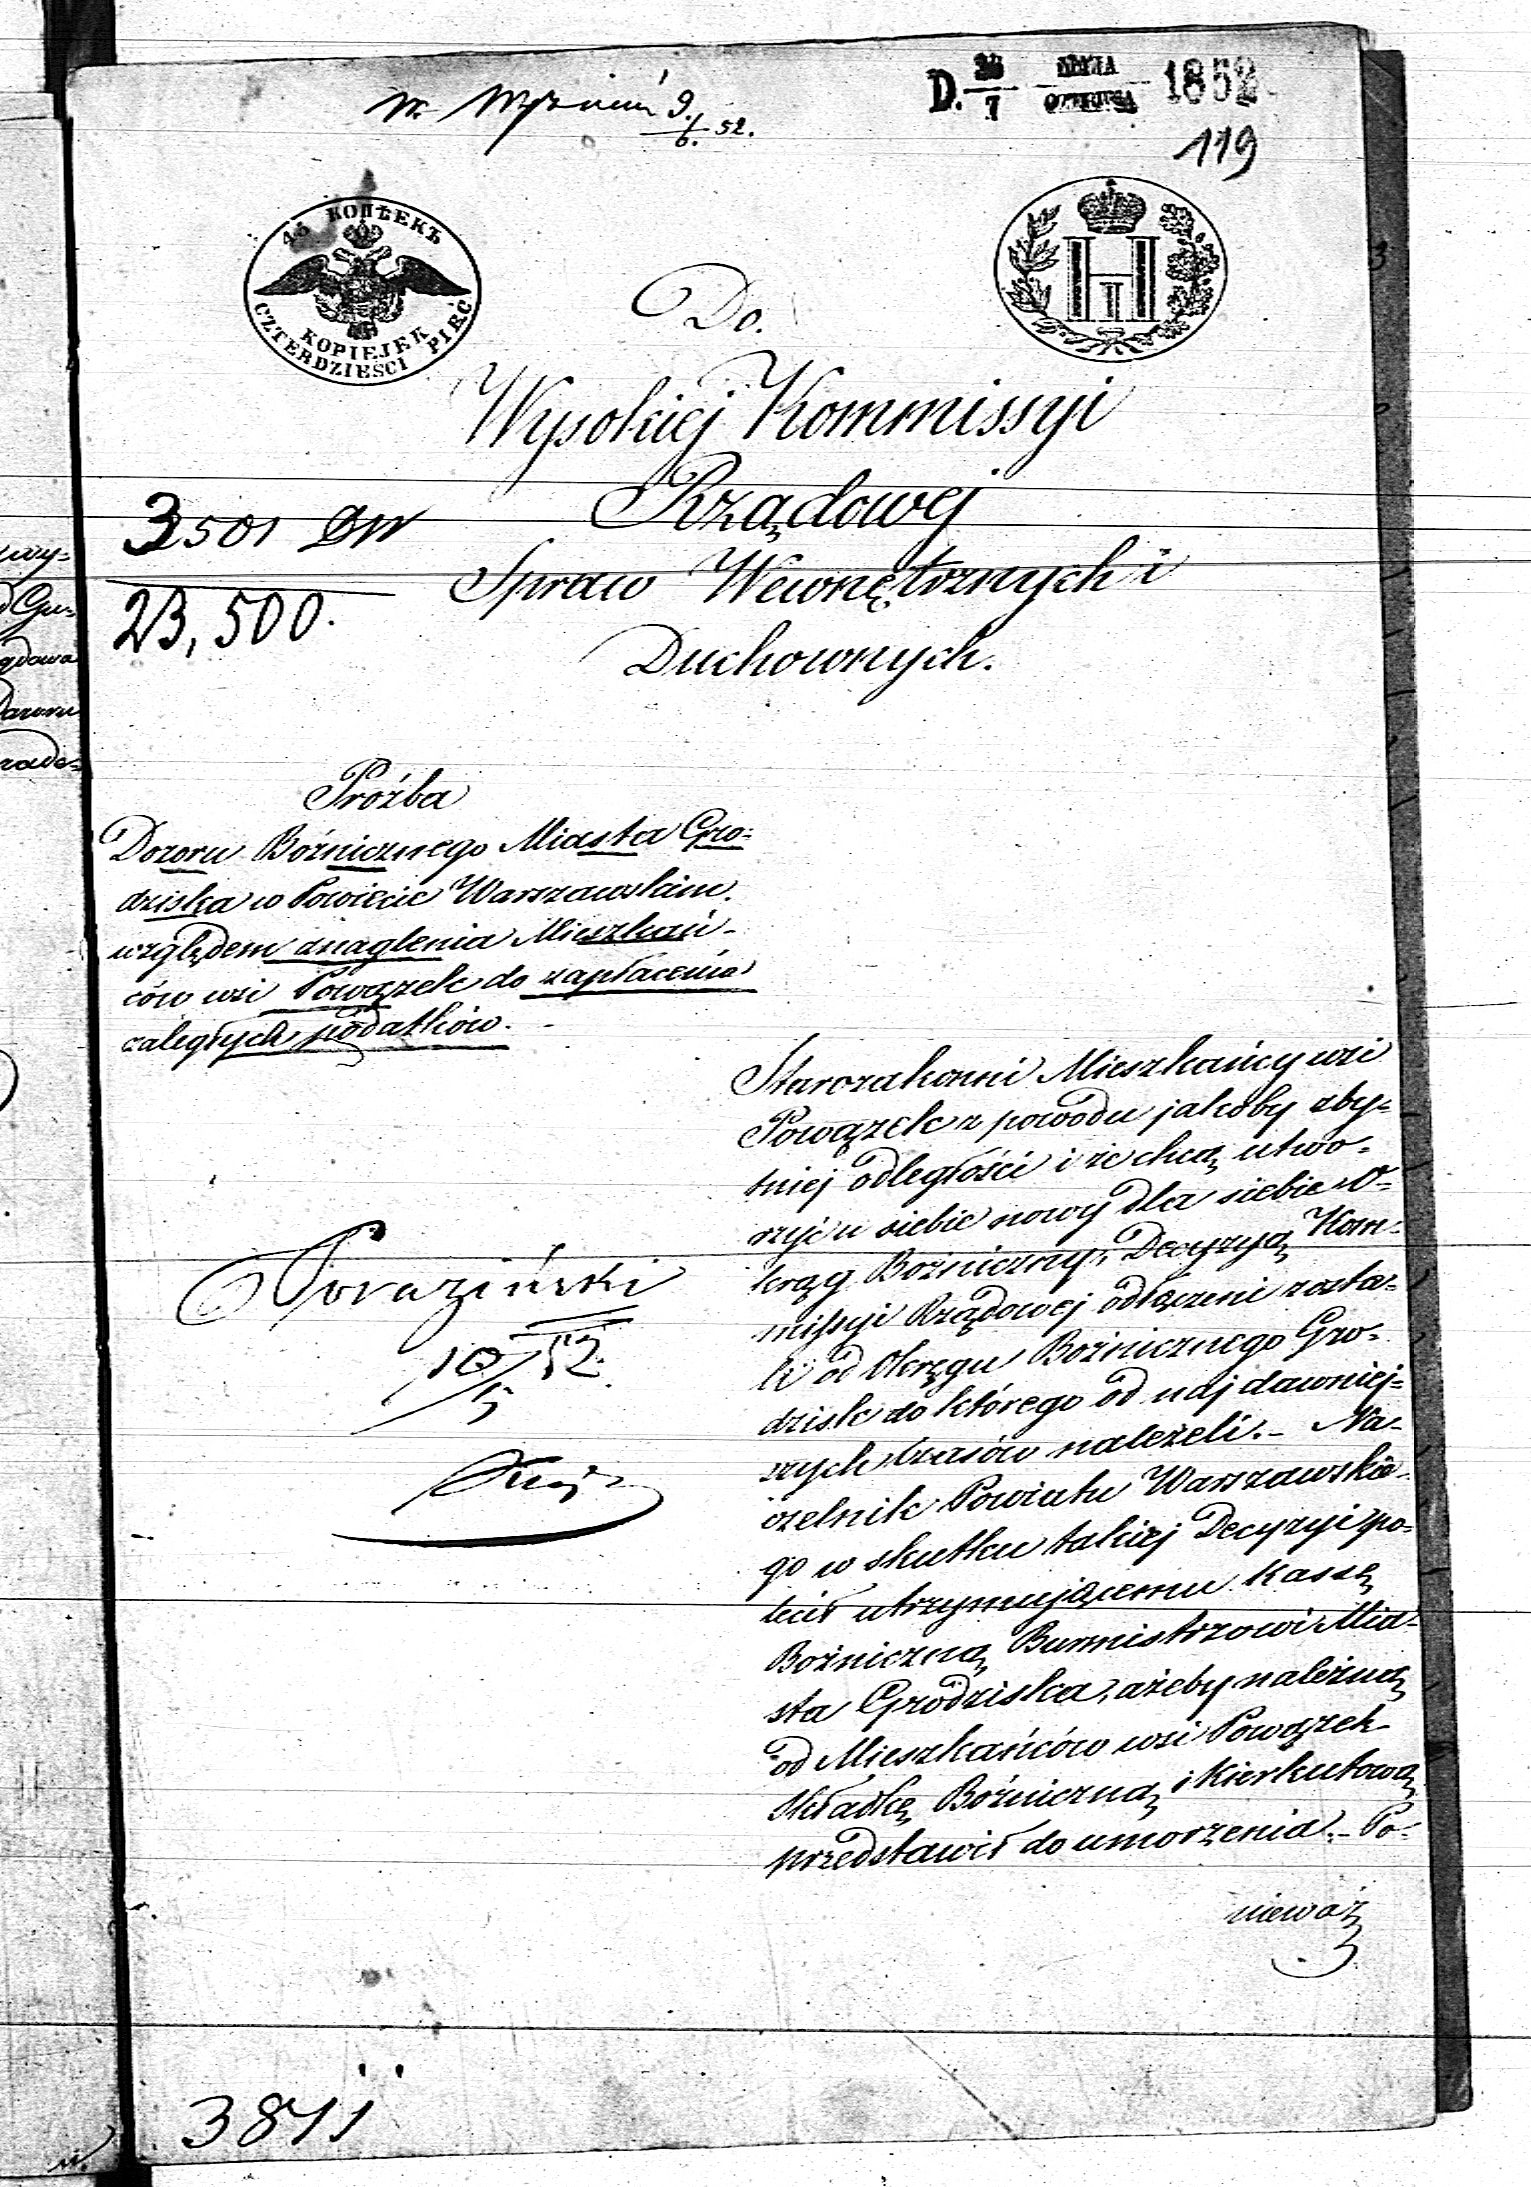 W. Wyznań 9/6. 52.
D. 26/7 1852
119
45 КОПѢЕКЪ
KOPIEJEK
CZTERDZIEŚCI PIĘĆ
Do.
Wysokiéj Kommissyi
Rządowéj
Spraw Wewnętrznych i
Duchownych.
3501 DW
23,500.
Proźba
Dozoru Bóźnicznego Miasta Gro-
dziska w Powiecie Warszawskim.
względem znaglenia Mieszkań-
ców wsi Powązek do zapłacenia
zaległych podatków.
Starozakonni Mieszkańcy wsi
Powązek z powodu jakoby zby-
tniej odległości i że chcą utwo-
rzyć u siebie nowy dla siebie O-
kręg Bożniczny, Decyzyą Kom-
missyi Rządowej odłączeni zosta-
li od Okręgu Bożnicznego Gro-
dzisk do którego od naj dawniej-
szych czasów należeli. - Na-
czelnik Powiatu Warszawskie-
go w skutku takiej Decyzyi po-
lecił utrzymującemu Kassę
Bożniczną Burmistrzowi Mia-
sta Grodziska, ażeby należną
od Mieszkańców wsi Powązek
składkę Bóżniczną i Kierkutową
przedstawił do umorzenia. - Po-
nieważ
10/5 52.
3811